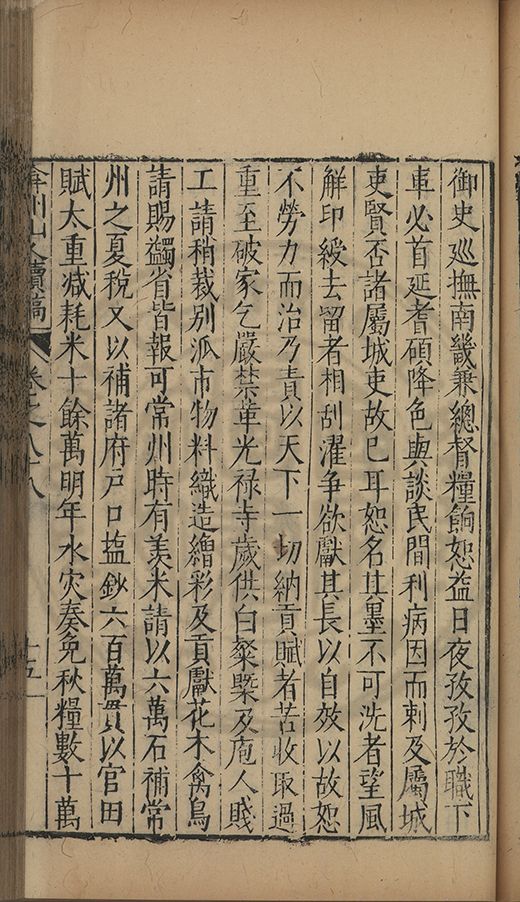 御史巡撫南畿兼總督糧餉恕益日夜孜孜於職下
車必首延耆碩降色與談民間利病因而刺及屬城
吏賢否諸屬城吏故已耳恕名其墨不可洗者望風
解印綬去留者相刮濯争欲獻其長以自效以故恕
不勞力而治乃責以天下一切納貢賦者苦收取過
重至破家乞嚴禁革光禄寺歲供白粲槩及庖人賤
工請稍裁别派市物料織造繒彩及貢獻花木禽鳥
請賜蠲省皆報可常州時有羡米請以六萬石補常
州之夏稅又以補諸府户口塩鈔六百萬貫以官田
賦太重减耗米十餘萬明年水灾奏免秋糧數十萬
弇州山人續稿 卷之八十八 十五